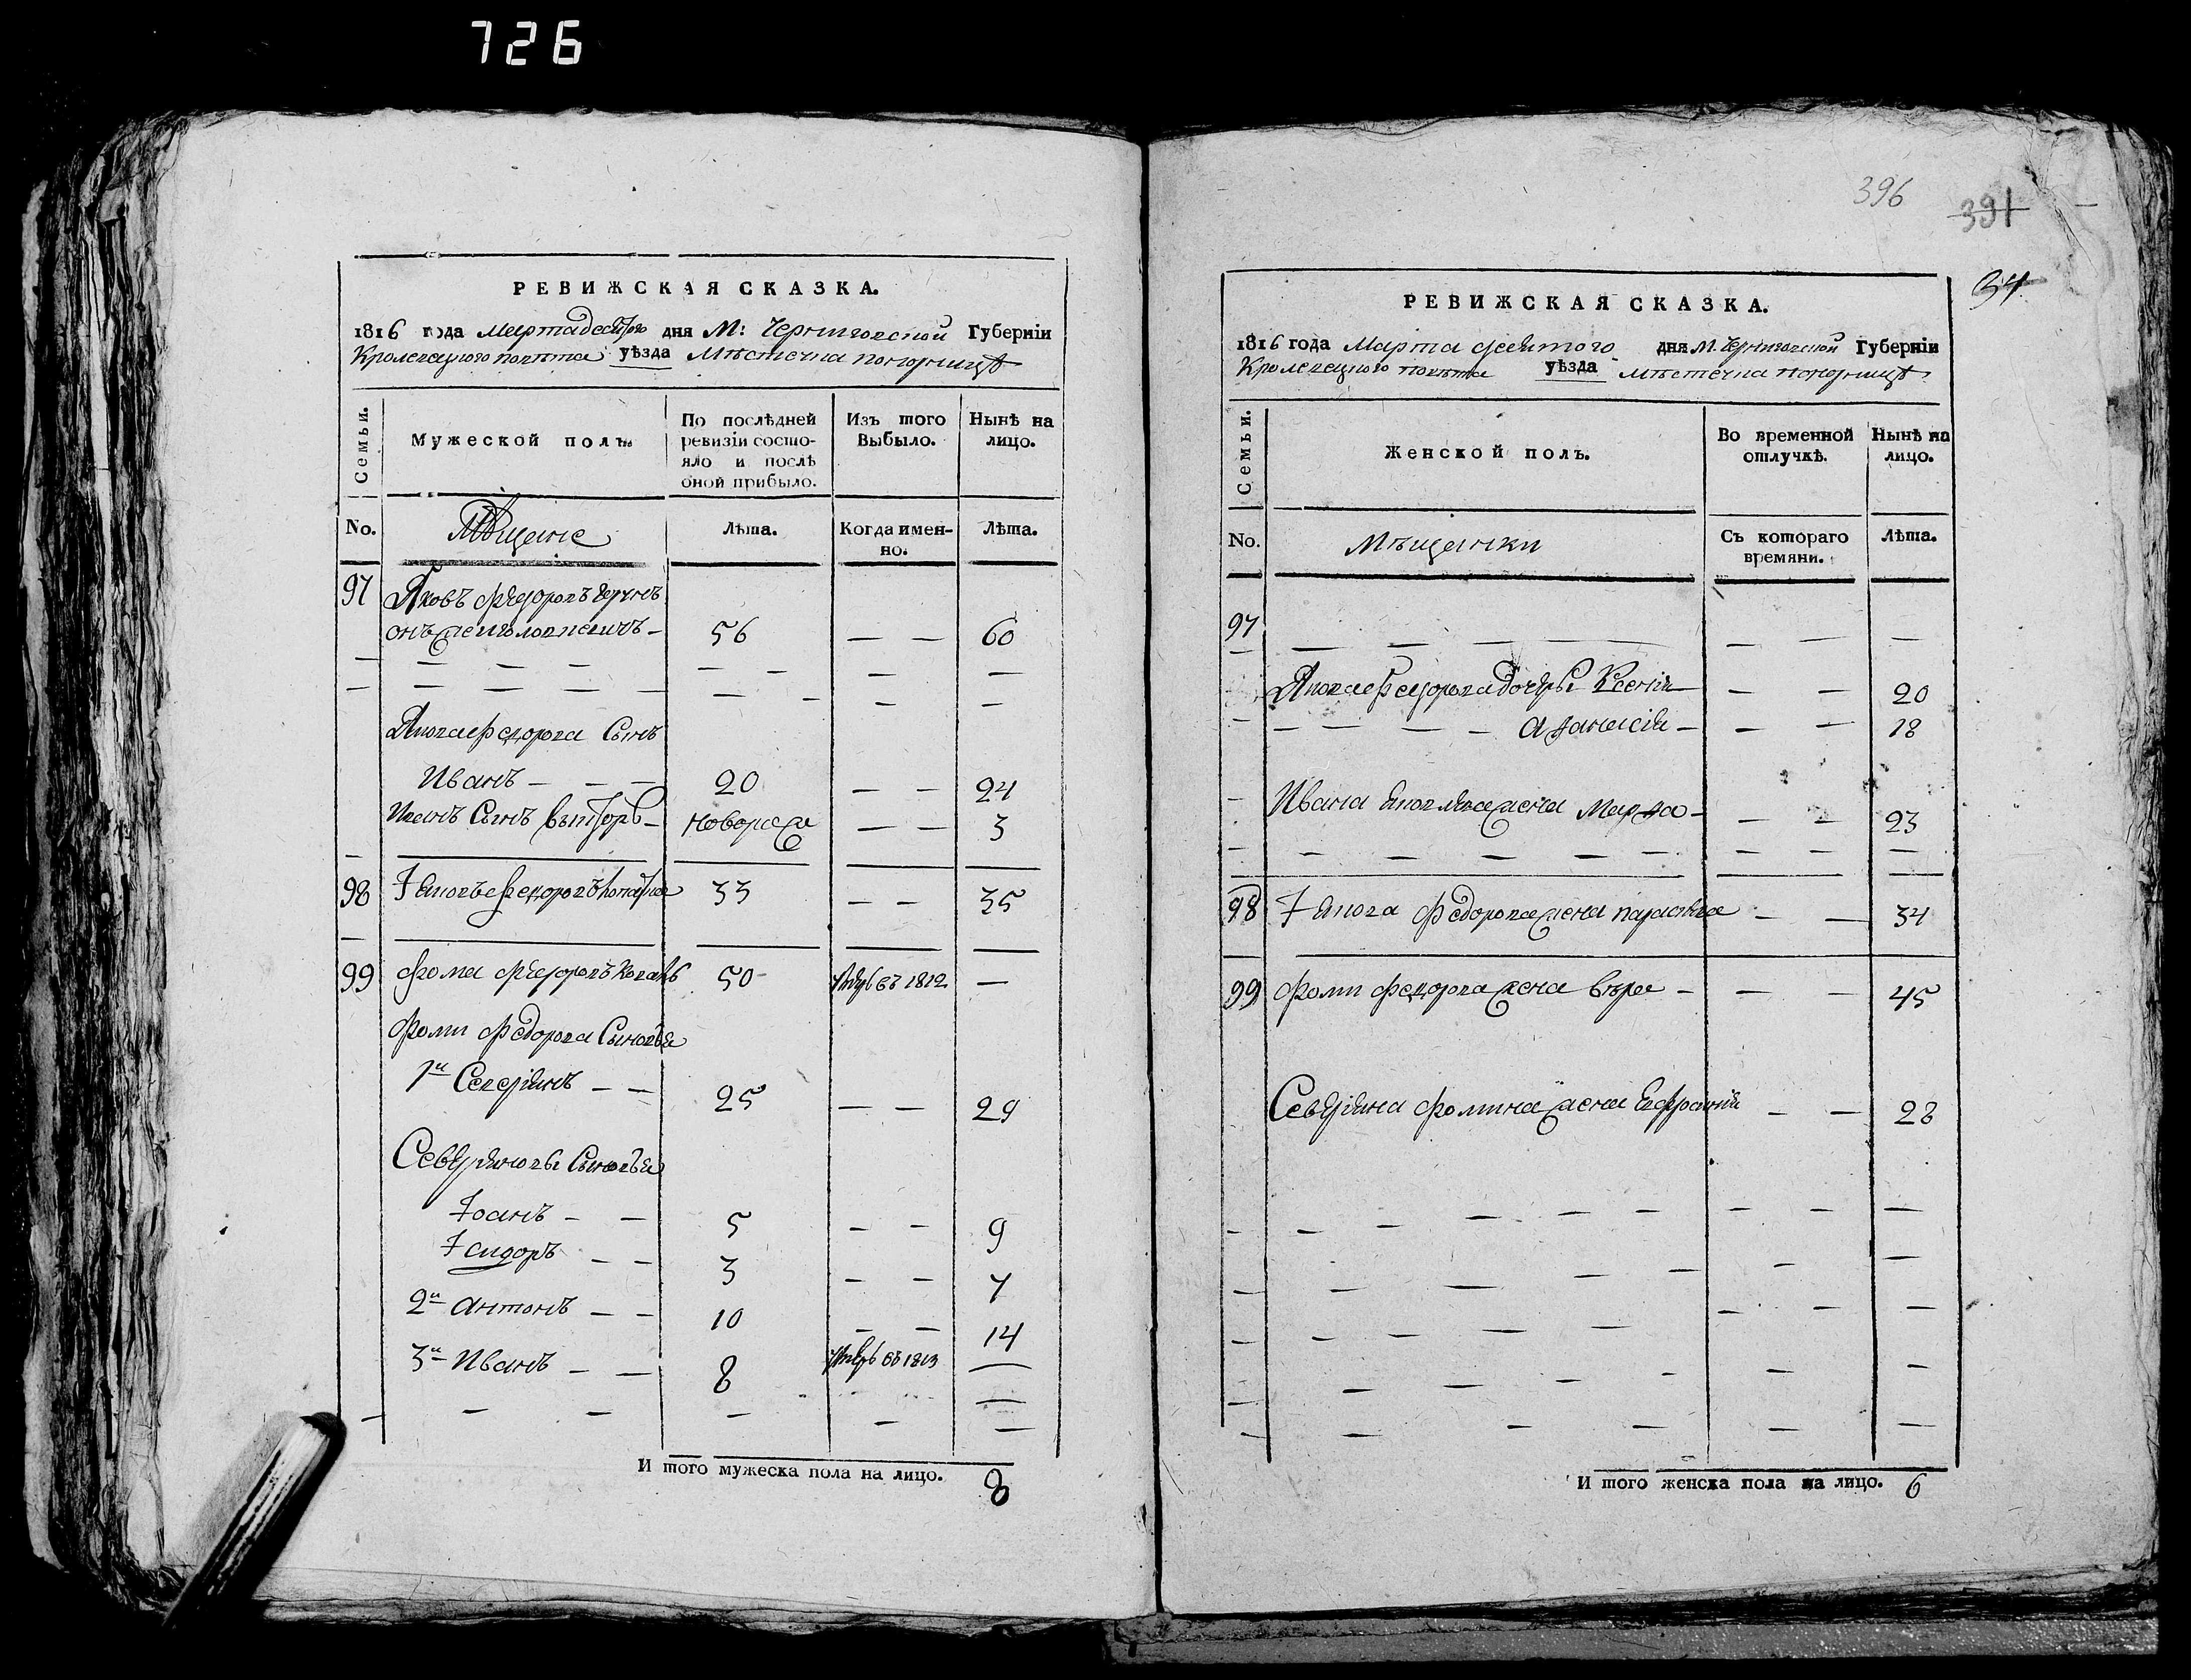 726
396
391
34
РЕВИЖСКАЯ СКАЗКА.
1816 года Марта десятого дня М: Черниговской Губернїи
Кролевецкого повѣта уѣзда Мѣстечка Понорницѣ
Семьи.
Мужеской полъ.
По послѣдней ревизїи состояло и послѣ оной прибыло.
Изъ того Выбыло.
Нынѣ на лицо.
No.
Мѣщане
Лѣта.
Когда именно.
Лѣта.
97 Яковъ Федоровъ
56 — — 60
Якова Федорова Сынъ
Иванъ — — — 20 — — 24
Иванъ Сынъ Викторъ — новорож — — 3
98 Іяковъ Федоровъ 33 — — 35
99 Фома Федоровъ 50 — умеръ въ 1812 —
Фоми Федорова Сыновья
1й Северіянъ — — 25 — — 29
Северіяновы Сыновья
Іоанъ — — 5 — — 9
Ісидоръ — — 3 — — 7
2й Антонъ — — 10 — — 14
3й Иванъ — — 8 умеръ въ 1813 —
И того мужеска пола на лицо. 8
РЕВИЖСКАЯ СКАЗКА.
1816 года Марта десятого дня М. Черниговской Губернїи
Кролевецкого повѣта уѣзда Мѣстечка Понорницѣ
Семьи.
Женской полъ.
Во временной отлучкѣ.
Нынѣ на лицо.
No.
Мѣщанки
Съ котораго времяни.
Лѣта.
97 — — — — — — —
Якова Федорова дочеры Ксенія — — — 20
— — — — Афанасія — — — 18
Ивана Яковлева жена Марфа — — — 23
98 Іякова Федорова жена Параскева — — 34
99 Фоми Федорова жена Вѣра — — — 45
Северіяна Фомина жена Евфросинія — — 28
И того женска пола на лицо. 6